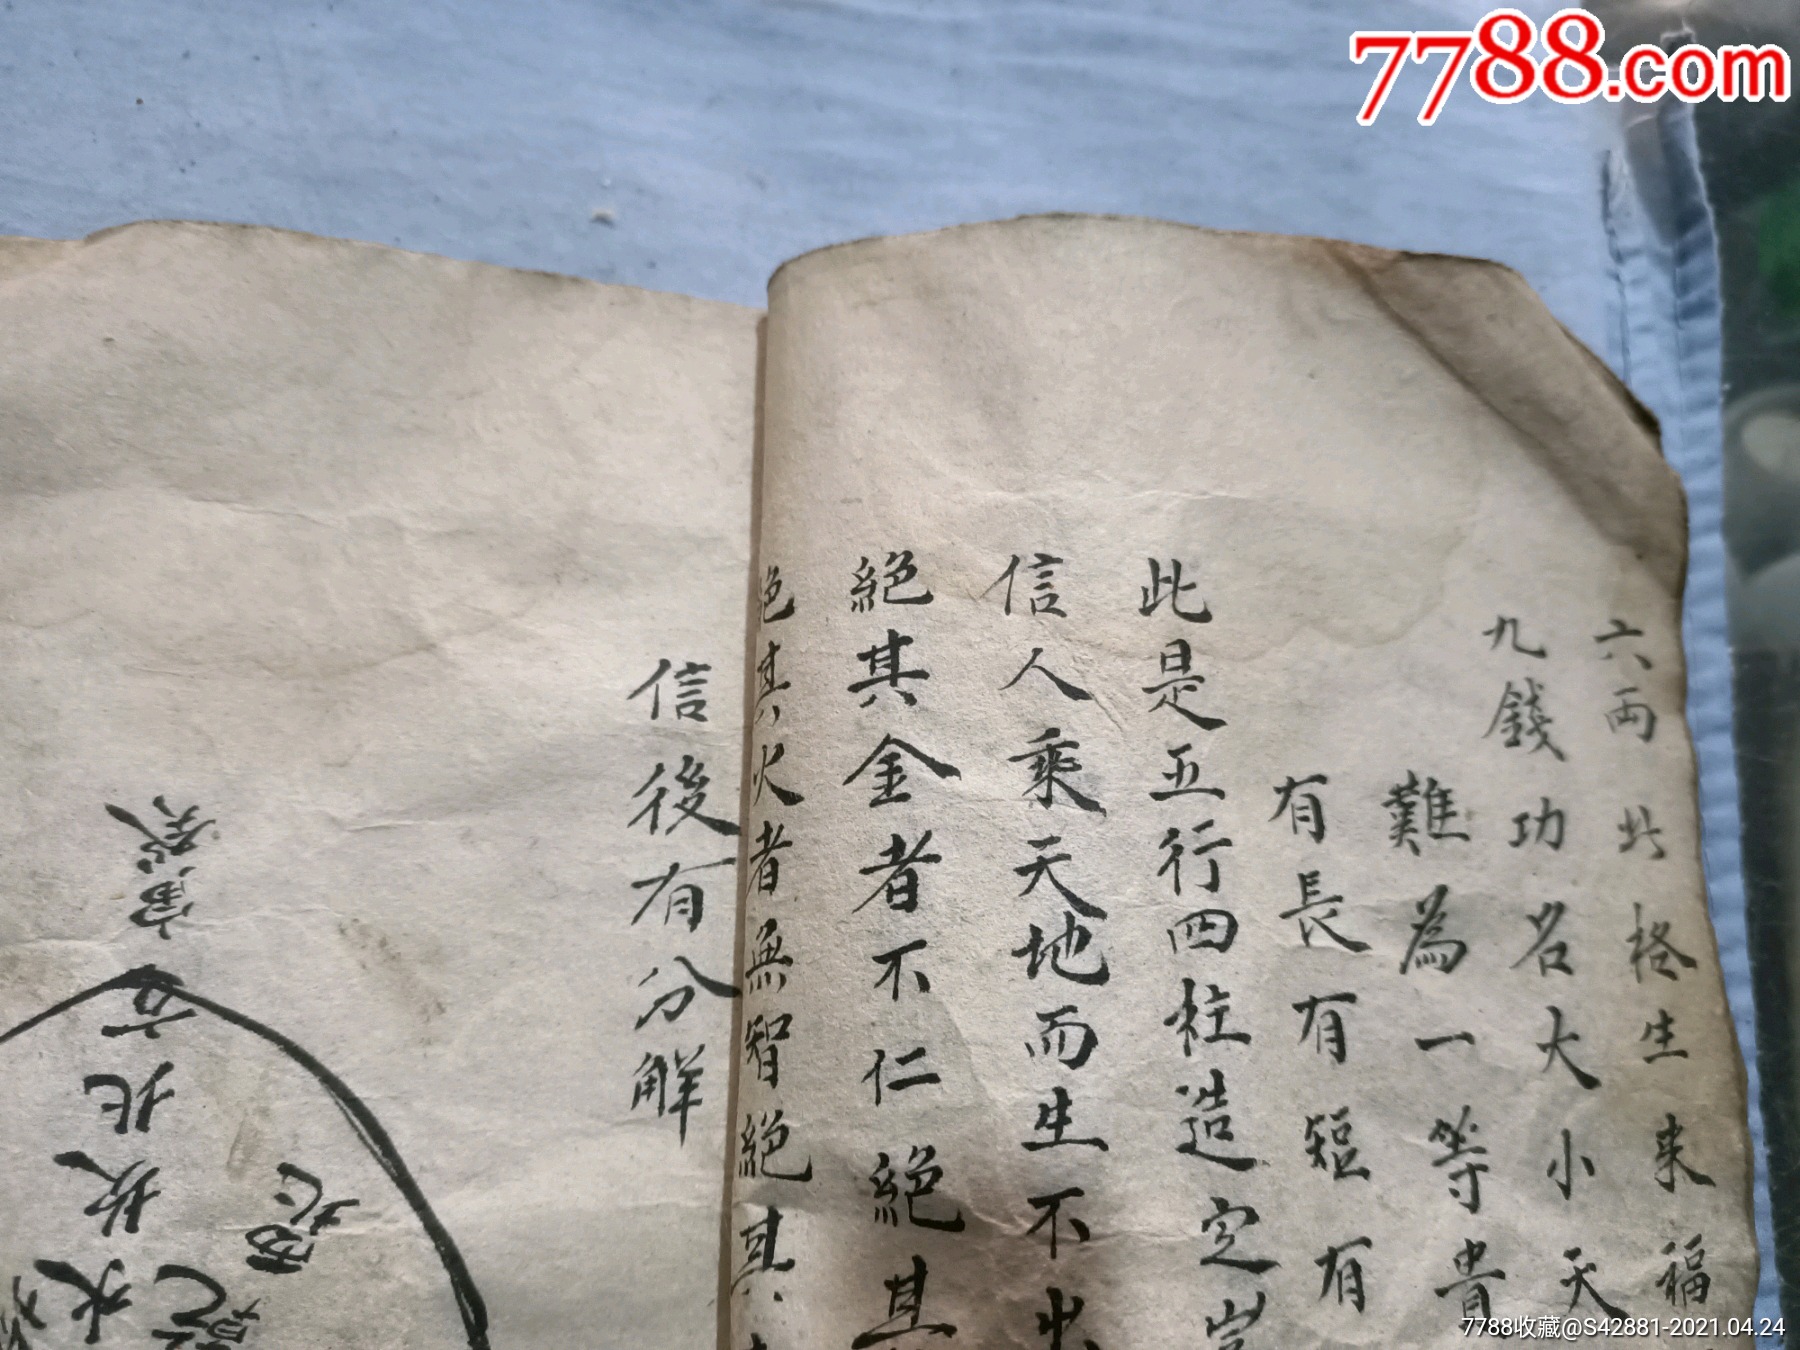 7788.com
六両此格生来福
九錢功名大小天
難為一等貴
有長有短有
此是五行四柱造定豈
信人乘天地而生不出
絕其金者不仁絕其
絕其火者無智絕其
信後有分解
北方
7788收藏@S42881-2021.04.24